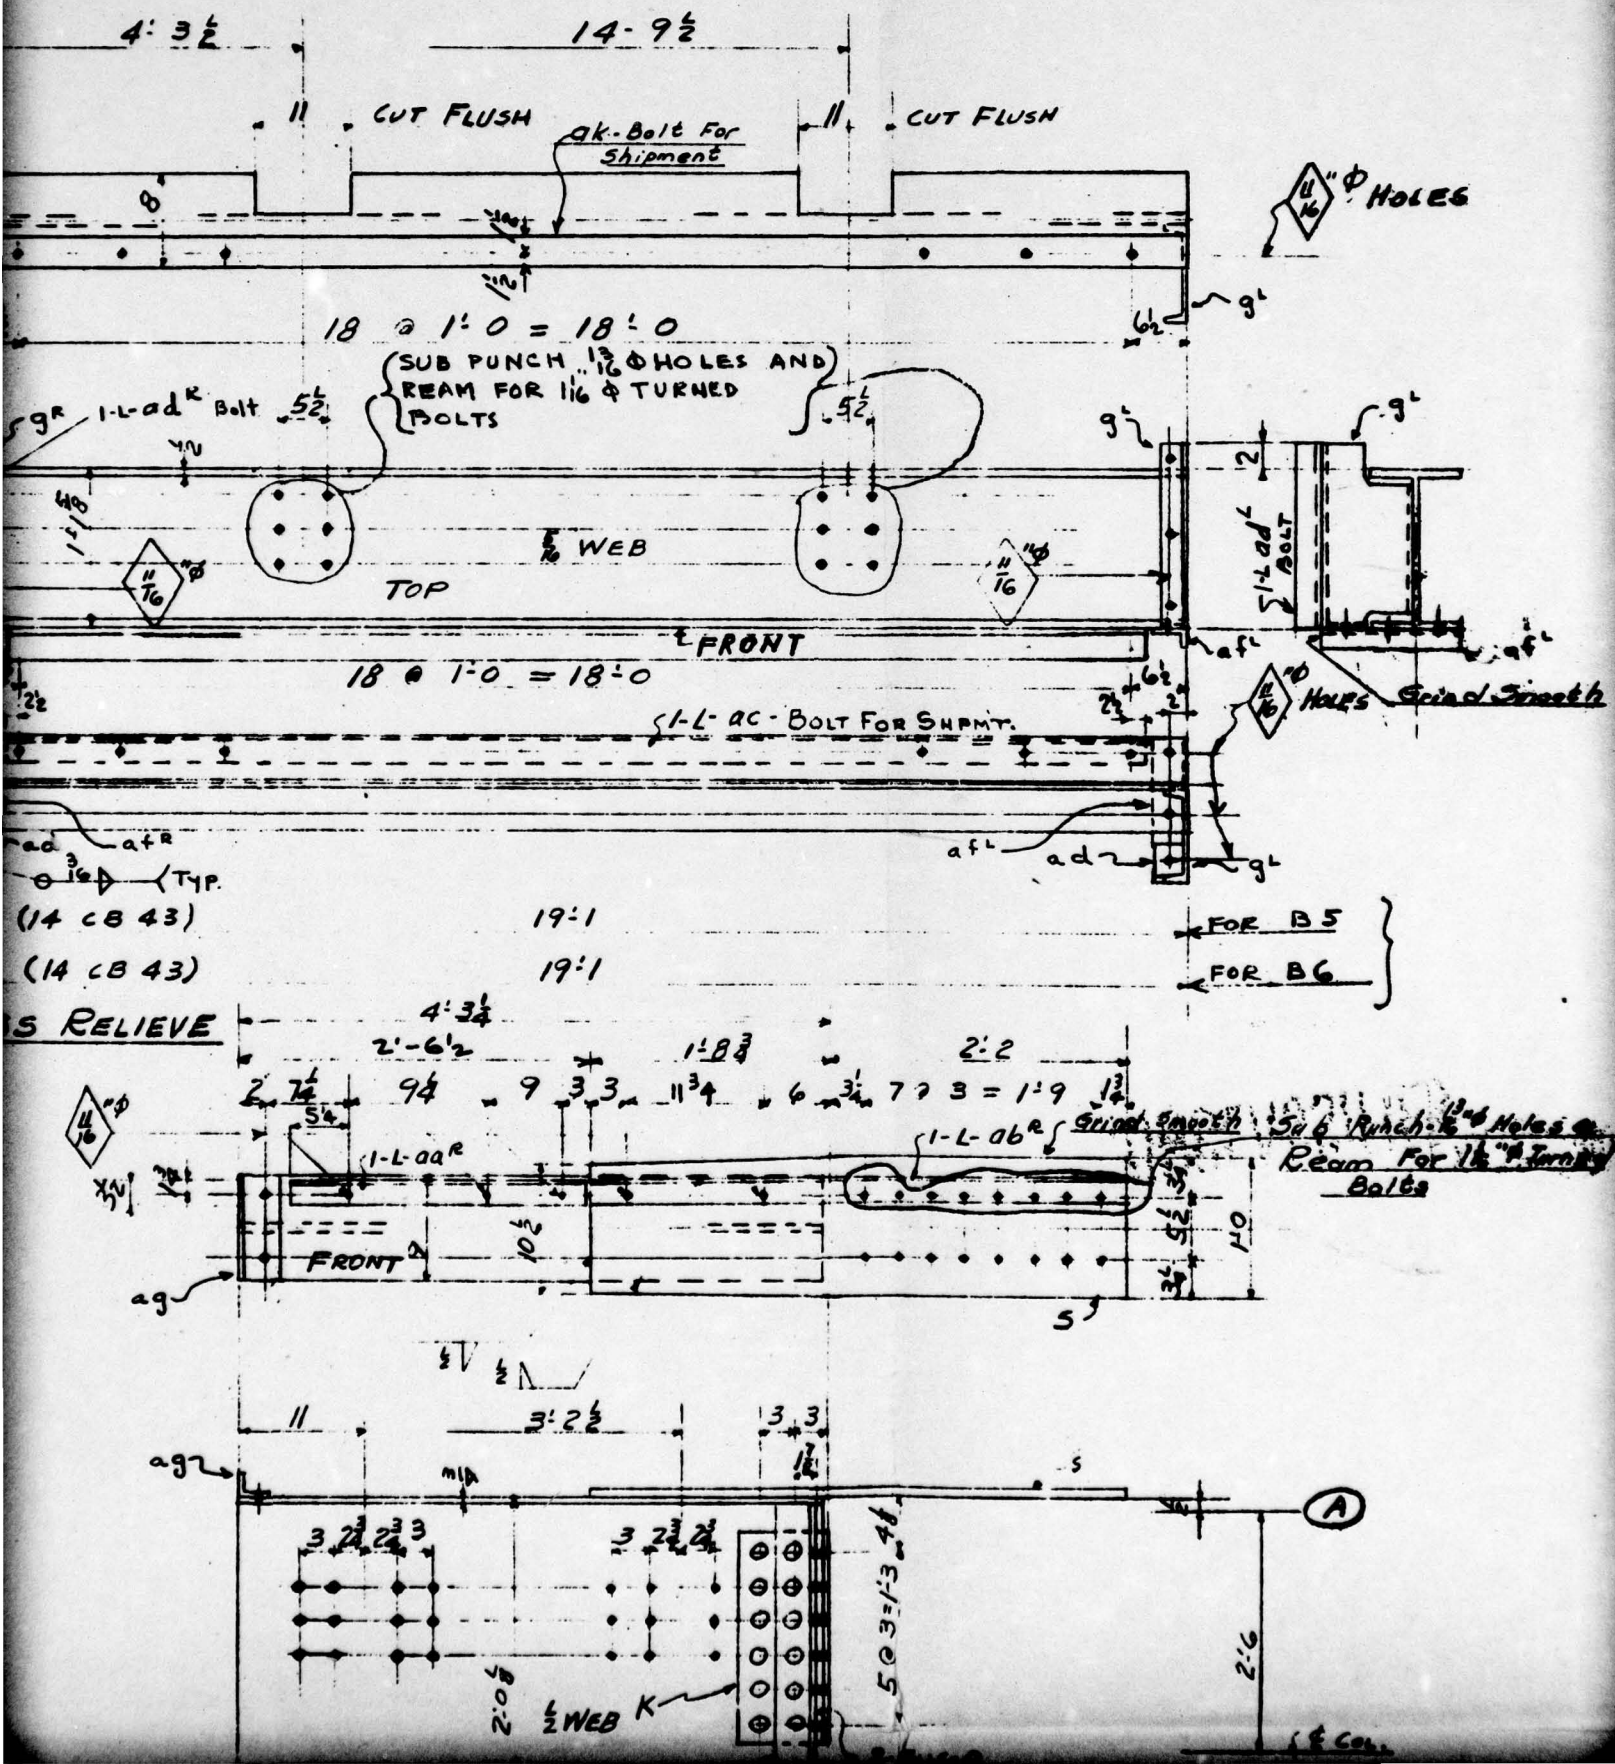 4'-3 1/2 14-9 1/2
11 CUT FLUSH 11 CUT FLUSH
ak-Bolt For
Shipment
8
11/16 "Φ HOLES
gL
18 @ 1'-0 = 18'-0
6 1/2
SUB PUNCH 13/16 Φ HOLES AND
REAM FOR 1 1/16 Φ TURNED
BOLTS
gR 1-L-adR Bolt 5 1/2 5 1/2
gL gL
2
1-L adL
BOLT
5/16 WEB
11/16 "Φ
TOP
11/16 "Φ
FRONT
afL afL
18 @ 1'-0 = 18'-0
6 1/2
2 1/2 2 1/2 2
11/16 "Φ HOLES Grind Smooth
1-L-ac-BOLT FOR SHPMT.
ad afR
afL ad gL
3/16 TYP.
(14 CB 43) 19'-1 FOR B5
(14 CB 43) 19'-1 FOR B6
S RELIEVE
4'-3 1/4
2'-6 1/2 1'-8 3/4 2'-2
2 7 1/4 9 1/4 9 3 3 11 3/4 6 3 1/4 7 @ 3 = 1'-9 1 3/4
5 1/4
11/16 "Φ
1-L-aaR
1-L-abR Grind Smooth
Sub Punch-13/16 "Φ Holes &
Ream For 1 1/16 "Φ Turned
Bolts
10 1/2
5 1/2
1'-0
3 1/4
FRONT
ag
S
1/2 1/2
11 3'-2 1/2 3 3
1 7/8
ag
S
A
3 2 3/4 2 3/4 3 3 2 3/4 2 3/4
4 1/8
5 @ 3=1'-3
2'-6
2'-0 1/8
1/2 WEB K
℄ Col.